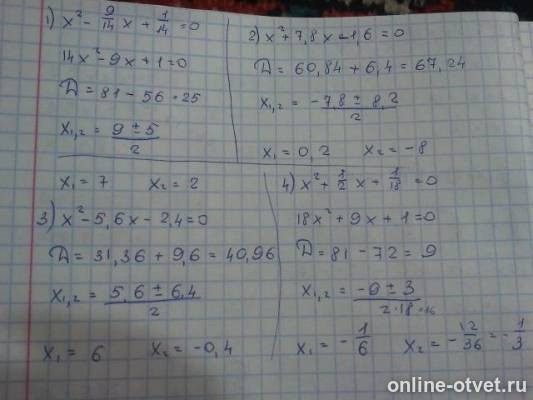 1) x² - 9/14 x + 1/14 = 0
14x² - 9x + 1 = 0
D = 81 - 56 = 25
x₁,₂ = (9 ± 5)/2
x₁ = 7 x₂ = 2
2) x² + 7,8x - 1,6 = 0
D = 60,84 + 6,4 = 67,24
x₁,₂ = (-7,8 ± 8,2)/2
x₁ = 0,2 x₂ = -8
3) x² - 5,6x - 2,4 = 0
D = 31,36 + 9,6 = 40,96
x₁,₂ = (5,6 ± 6,4)/2
x₁ = 6 x₂ = -0,4
4) x² + 1/2 x + 1/18 = 0
18x² + 9x + 1 = 0
D = 81 - 72 = 9
x₁,₂ = (-9 ± 3)/(2·18)
x₁ = -1/6 x₂ = -12/36 = -1/3
online-otvet.ru